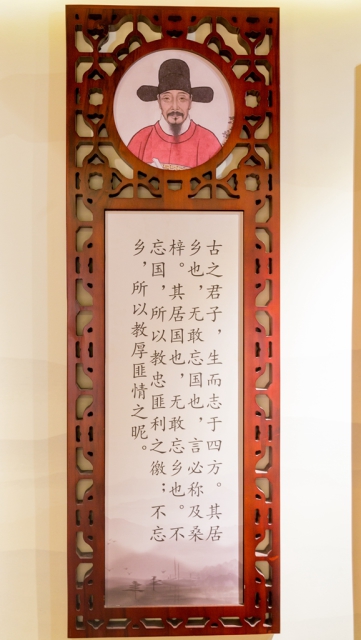 古之君子，生而志于四方。其居
乡也，无敢忘国也，言必称及桑
梓。其居国也，无敢忘乡也。不
忘国，所以教忠匪利之徼；不忘
乡，所以教厚匪情之昵。